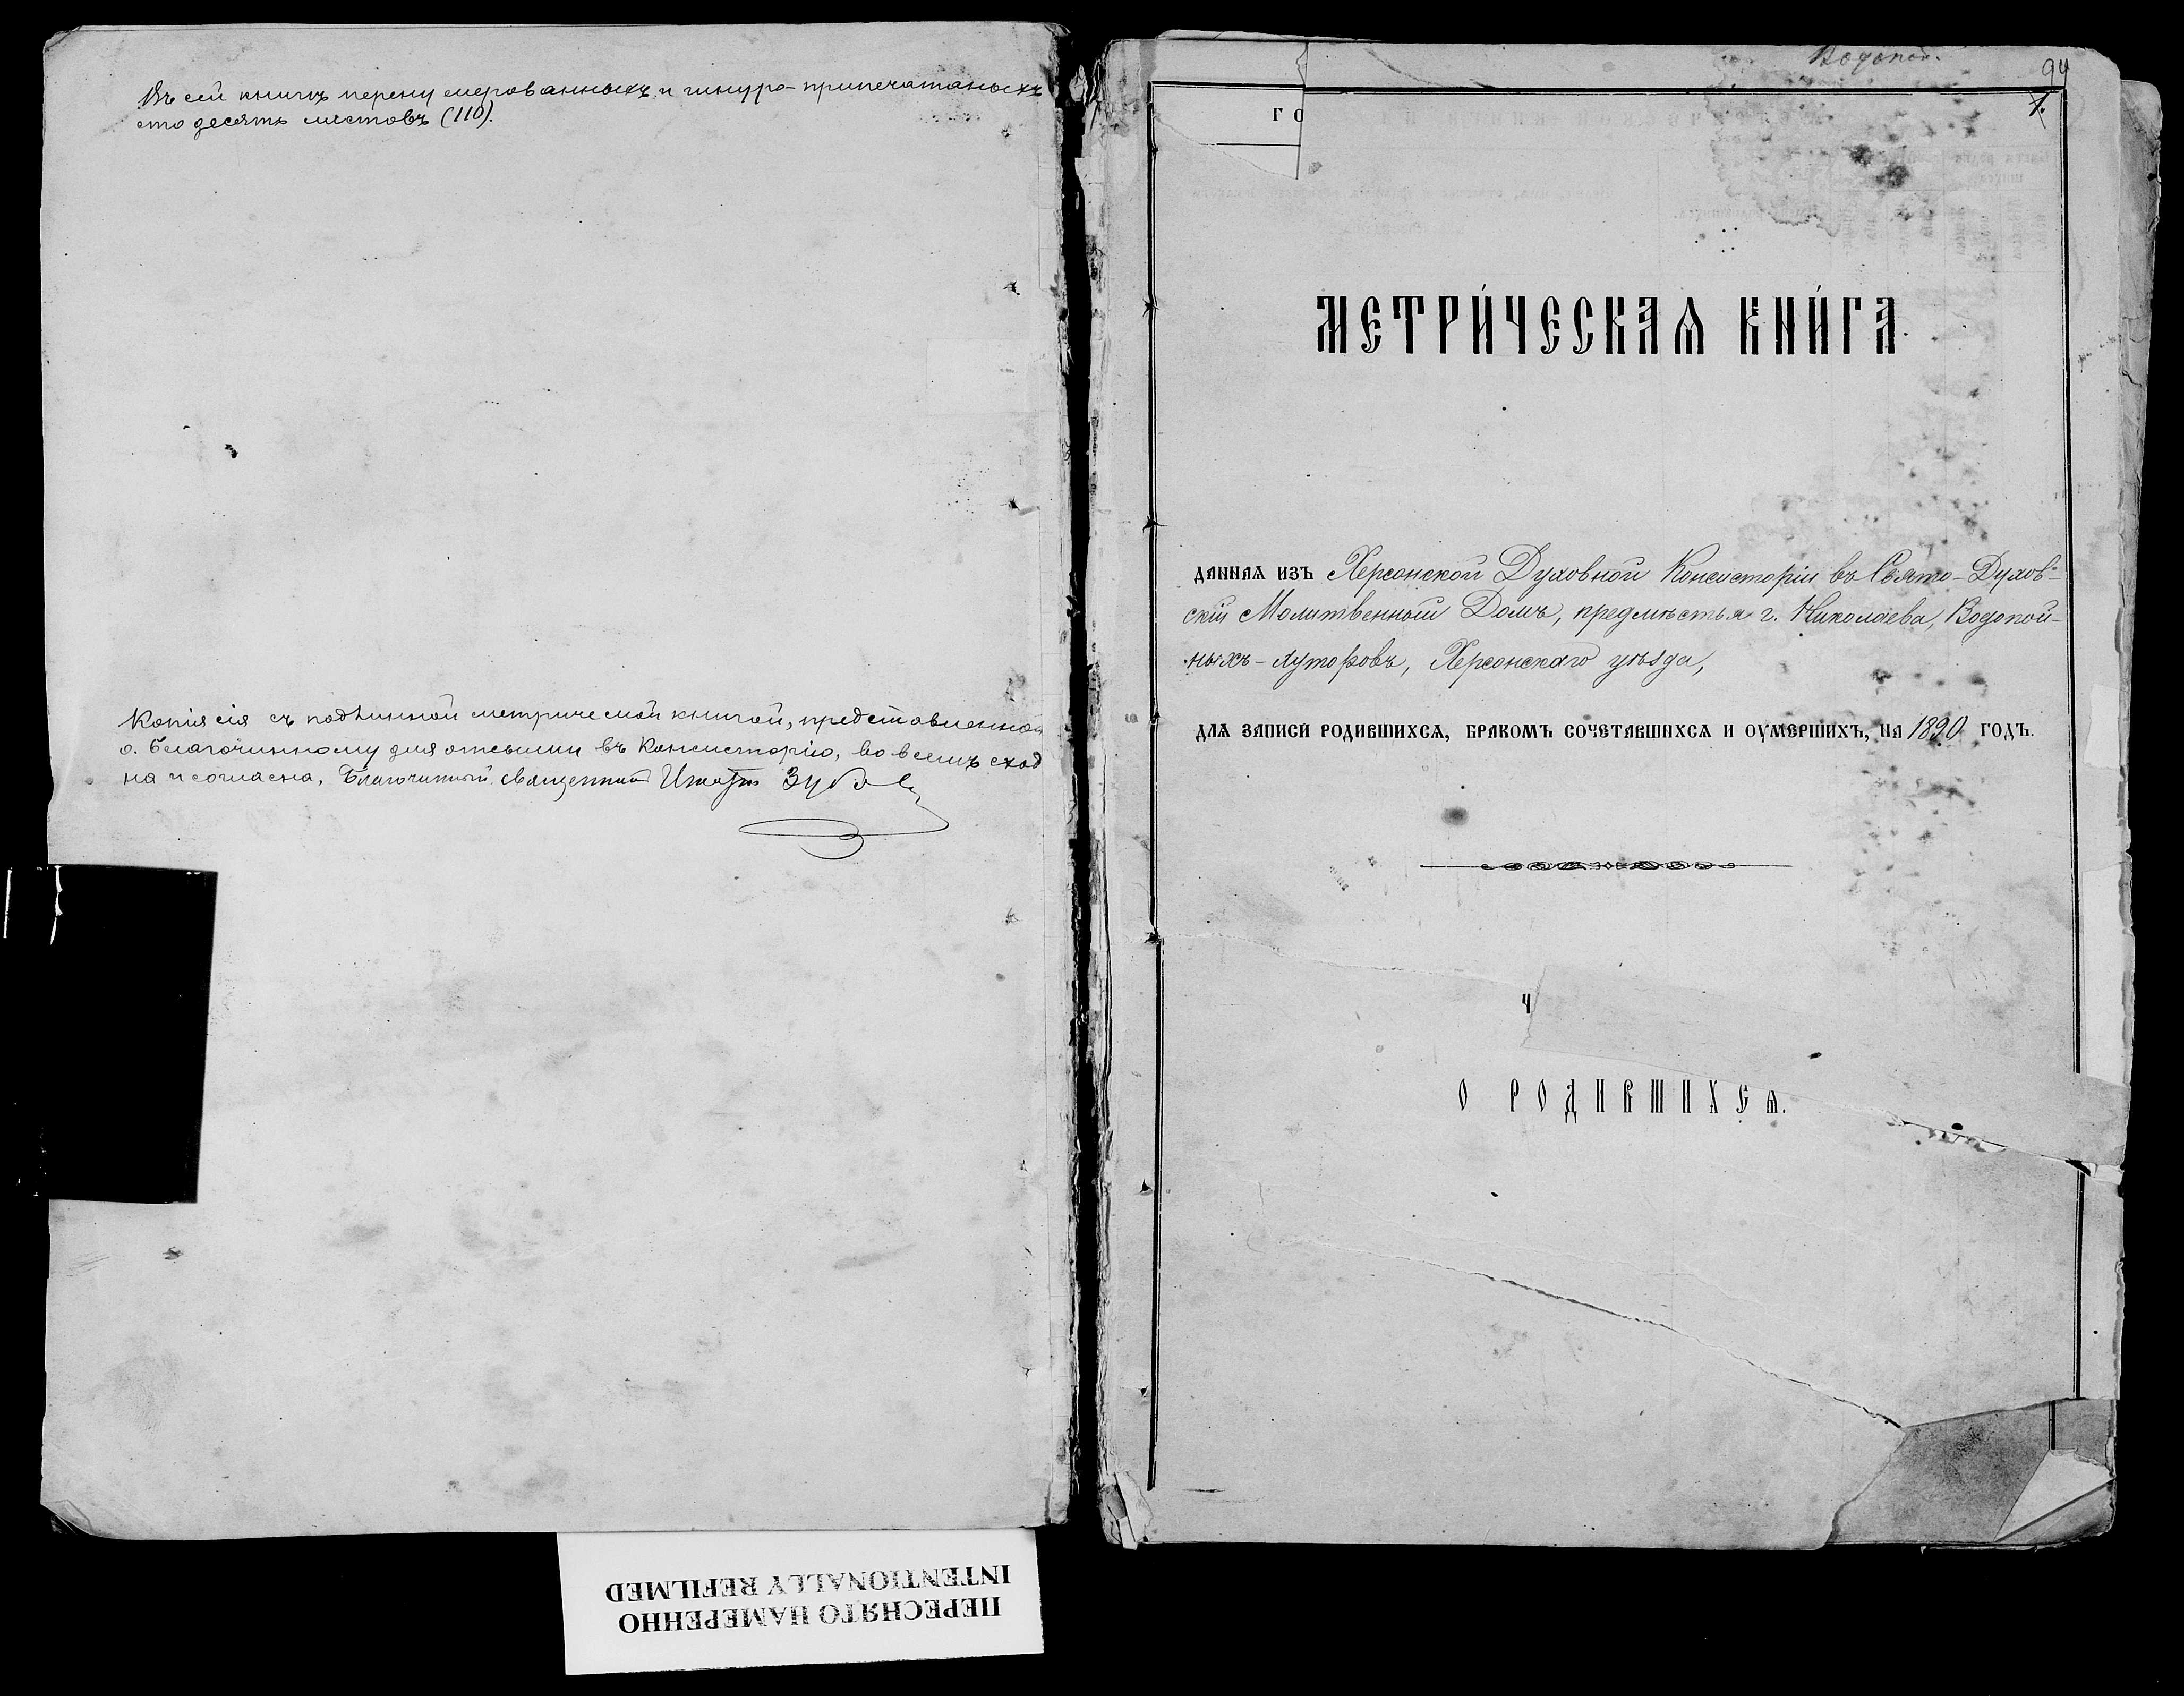 Въ сей книгѣ перенумерованныхъ и шнуро-припечатаныхъ
сто десять листовъ (110).
Копія сія съ подлинной метрической книгой, представленной
о. благочинному для отсылки въ Консисторію, во всемъ сход
на и согласна. Благочинный священникъ Зубовъ
ПЕРЕСНЯТО НАМЕРЕННО
INTENTIONALLY REFILMED
Водопой.
94
1.
ГО
МЕТРИ́ЧЕСКАѦ КНИ́ГА
ДАННАѦ ИЗЪ Херсонской Духовной Консисторіи въ Свято-Духов-
скій Молитвенный Домъ, предмѣстья г. Николаева, Водопой-
ныхъ-хуторовъ, Херсонскаго уѣзда,
ДЛѦ ЗАПИСИ РОДИВШИХСѦ, БРАКОМЪ СОЧЕТАВШИХСѦ И ОУМЕРШИХЪ, НА 1890 ГОДЪ.
Ч
О РОДИВШИХСѦ.